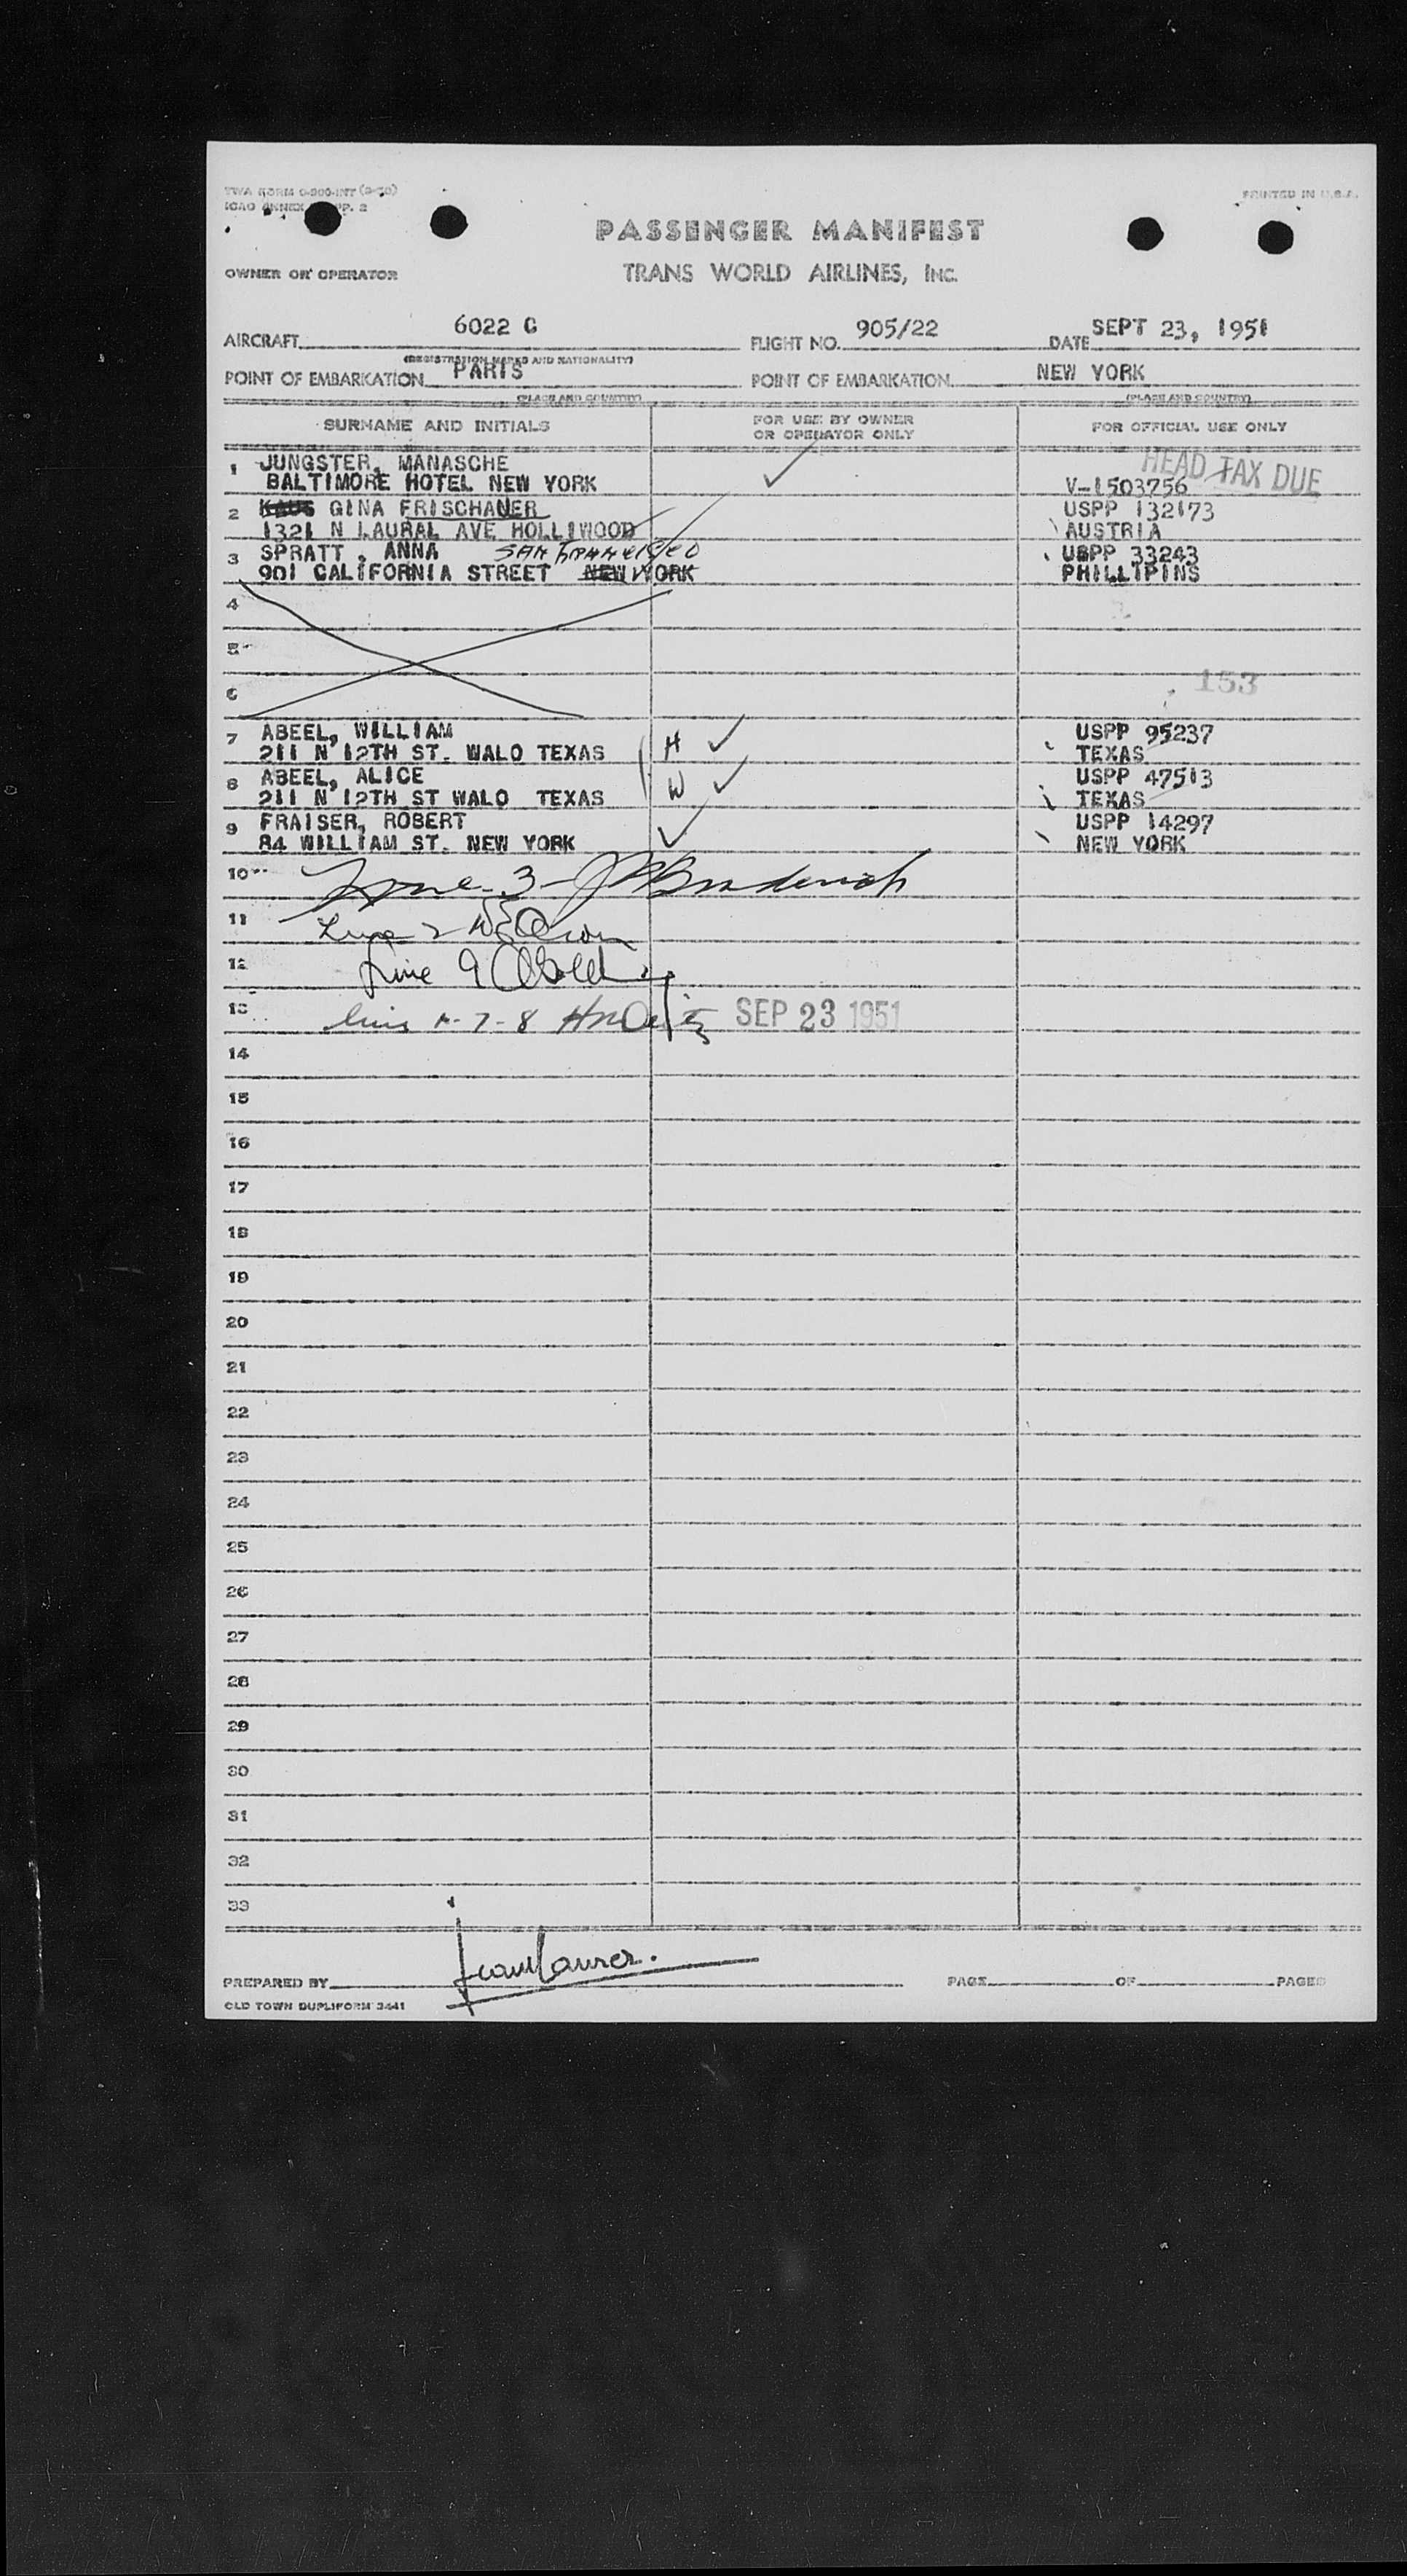 TWA FORM 0-900-INT (9-50)
PRINTED IN U.S.A.
ICAO ANNEX PP. 2
PASSENGER MANIFEST
OWNER OR OPERATOR TRANS WORLD AIRLINES, INC.
AIRCRAFT 6022 C FLIGHT NO. 905/22 DATE SEPT 23, 1951
(REGISTRATION MARKS AND NATIONALITY)
POINT OF EMBARKATION PARIS POINT OF EMBARKATION NEW YORK
(PLACE AND COUNTRY) (PLACE AND COUNTRY)
SURNAME AND INITIALS FOR USE BY OWNER OR OPERATOR ONLY FOR OFFICIAL USE ONLY
HEAD TAX DUE
1 JUNGSTER, MANASCHE
BALTIMORE HOTEL NEW YORK V-1503756
2 KAUS GINA FRISCHANER USPP 132173
1321 N LAURAL AVE HOLLIWOOD AUSTRIA
3 SPRATT , ANNA SAN FRANCISCO USPP 33243
901 CALIFORNIA STREET NEW YORK PHILLIPINS
4
5
6 153
7 ABEEL, WILLIAM H USPP 95237
211 N 12TH ST. WALO TEXAS TEXAS
8 ABEEL, ALICE W USPP 47513
211 N 12TH ST WALO TEXAS TEXAS
9 FRAISER, ROBERT USPP 14297
84 WILLIAM ST. NEW YORK NEW YORK
10
11
12 Line 9
13 SEP 23 1951
14
15
16
17
18
19
20
21
22
23
24
25
26
27
28
29
30
31
32
33
PREPARED BY PAGE OF PAGES
OLD TOWN DUPLIFORM 3441